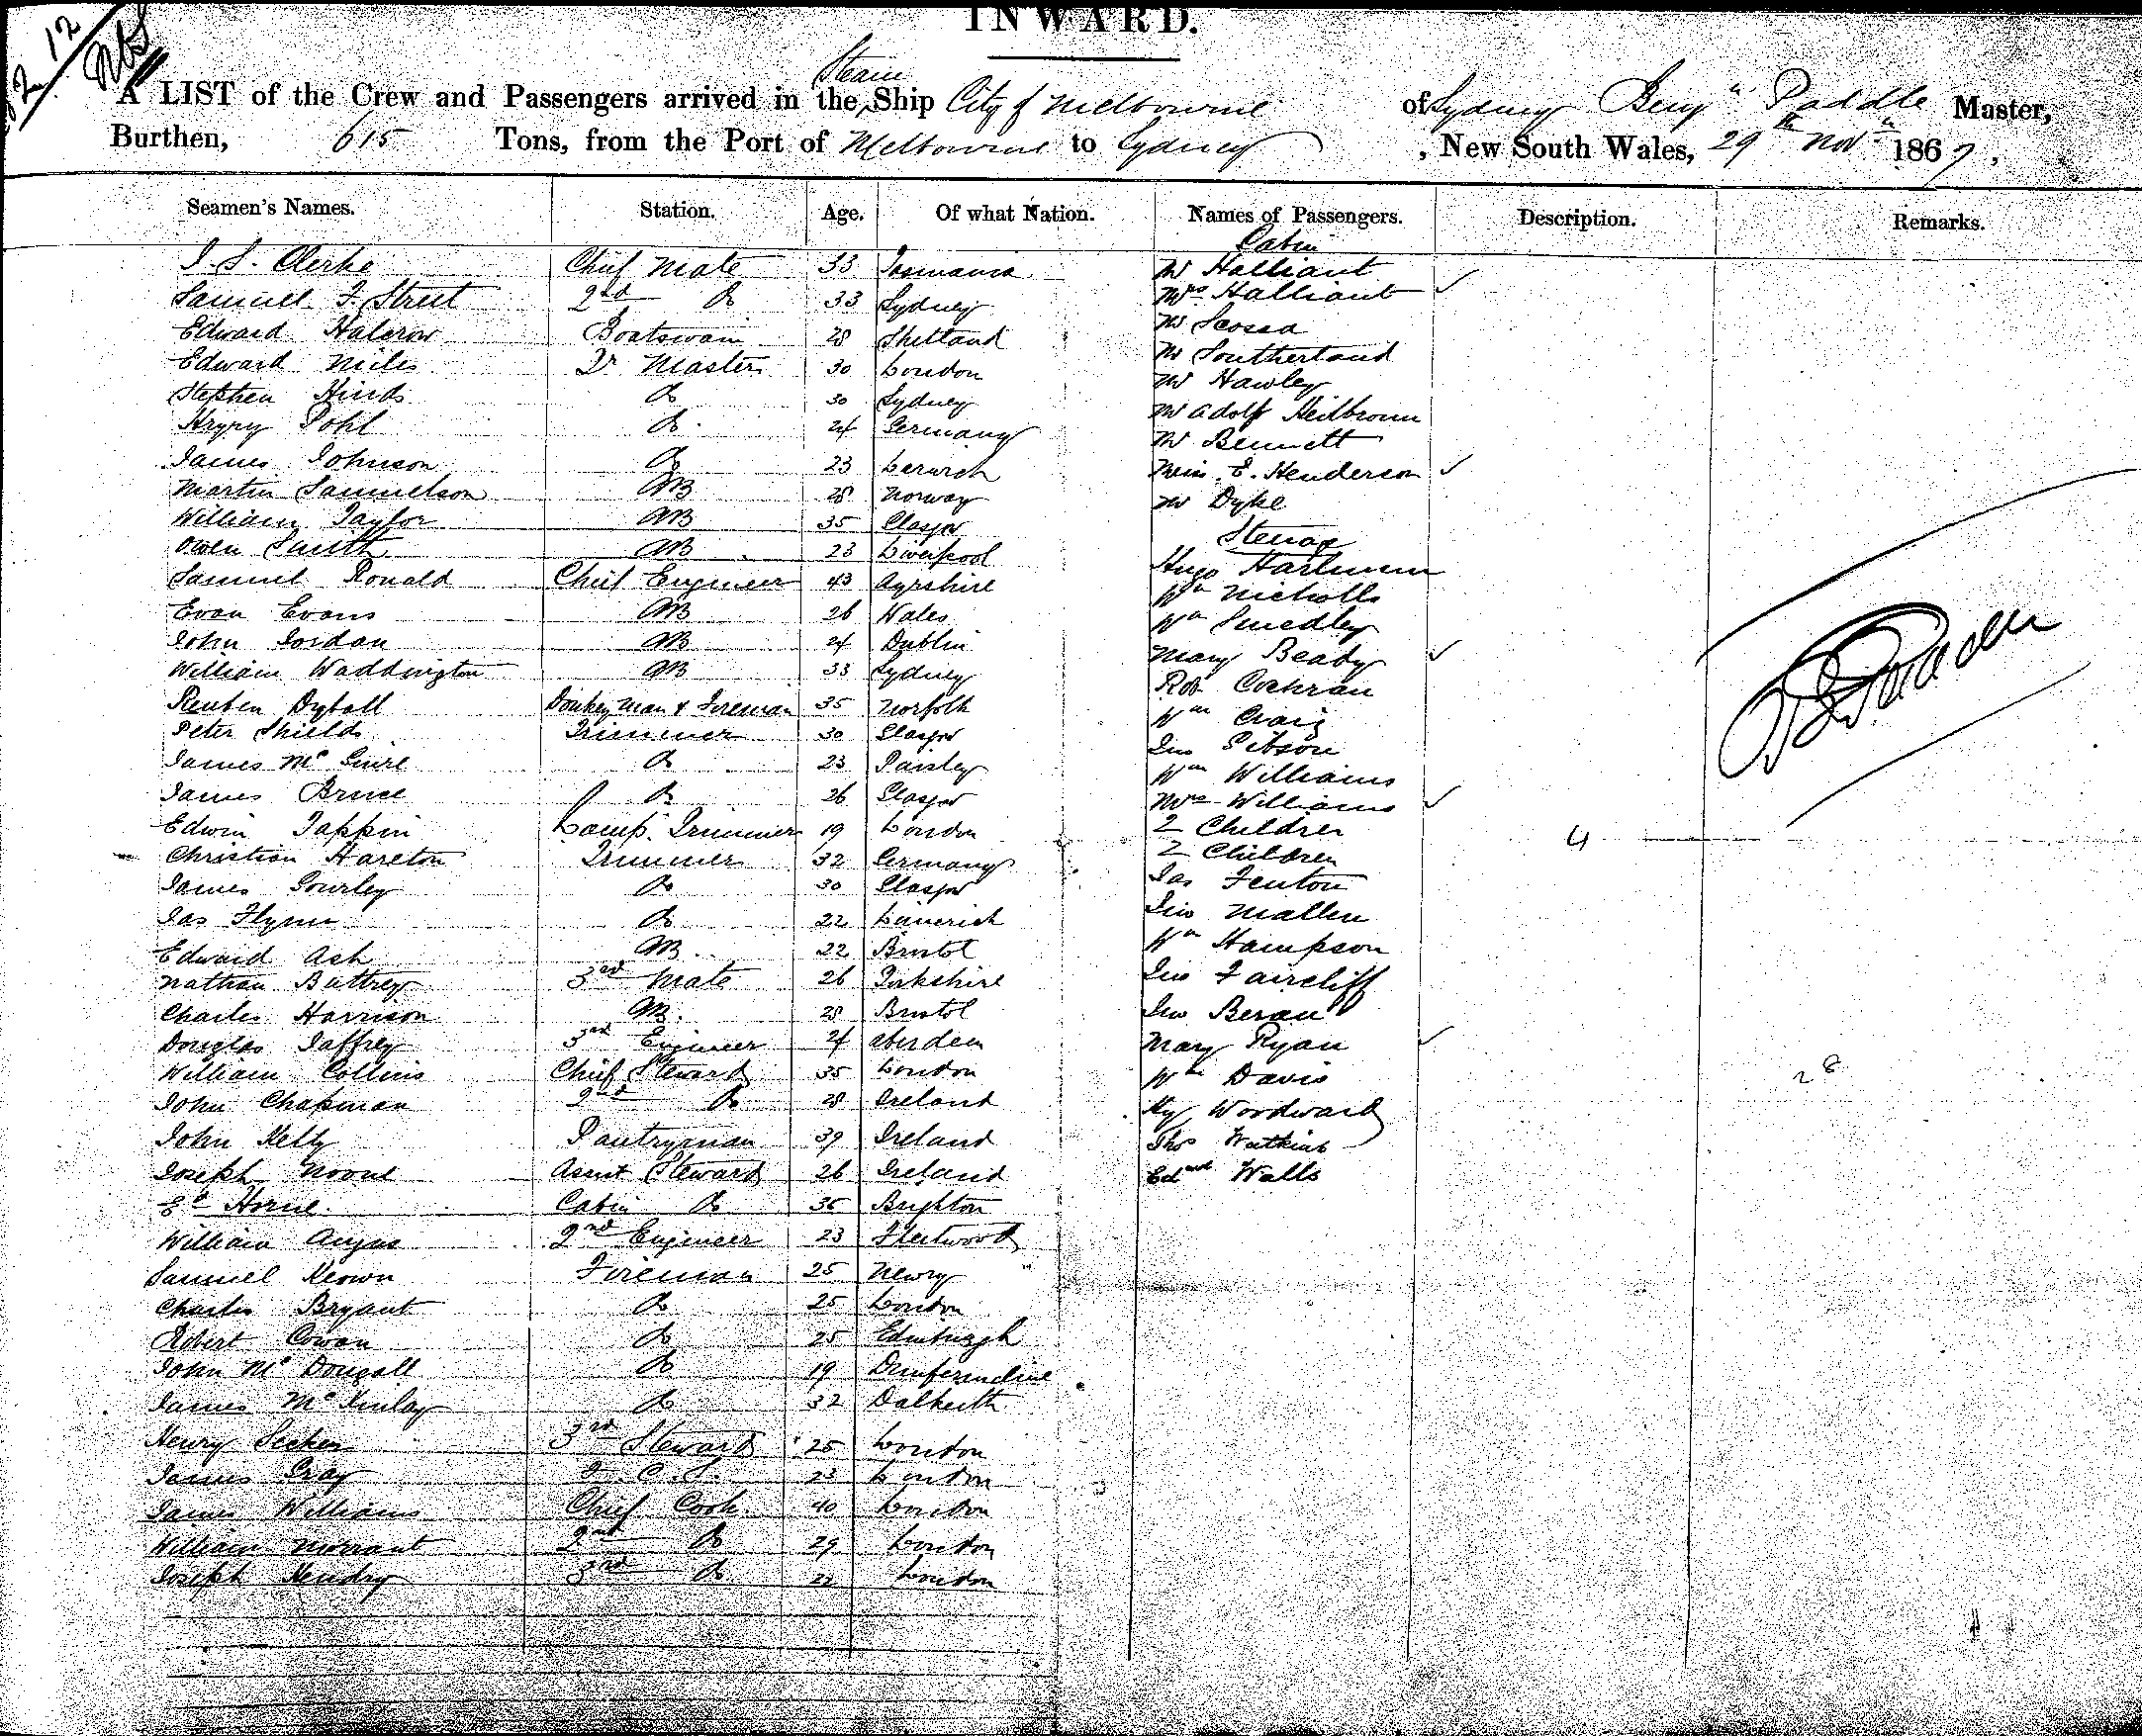 INWARD.
A LIST of the Crew and Passengers arrived in the Steam Ship City of Melbourne of Sydney Benjn Paddle Master,
Burthen, 615 Tons, from the Port of Melbourne to Sydney, New South Wales, 29th Novr 1867.
Seamen's Names. Station. Age. Of what Nation. Names of Passengers. Description. Remarks.
Cabin
J. S. Clerke Chief Mate 33 Tasmania Mr Halliant
Samuel J. Street 2nd Do 33 Sydney Mrs Halliant
Edward Halcrow Boatswain 28 Shetland Mr Scossa
Edward Miles Qr Master 30 London Mr Southerland
Stephen Hinds Do 30 Sydney Mr Hawley
Hryry Pohl Do 24 Germany Mr Adolf Heilbronn
James Johnson Do 23 Lerwick Mr Bennett
Martin Samuelson AB 28 Norway Miss E. Henderson
William Taylor AB 35 Glasgow Mr Dyke
Owen Smith AB 23 Liverpool Steerage
Samuel Ronald Chief Engineer 43 Ayrshire Hugo Hartmann
Evan Evans AB 26 Wales Wm Nicholls
John Jordan AB 24 Dublin Wm Smedley
William Waddington AB 33 Sydney Mary Beady
Reuben Dyball Donkey Man & Fireman 35 Norfolk Robt Cochran
Peter Shields Trimmer 30 Glasgow Wm Craig
James McGuire Do 23 Paisley Jno Gibson
James Bruce Do 26 Glasgow Wm Williams
Mrs Williams
Edwin Tappin Lamp Trimmer 19 London 2 Children 4
Christian Hareton Trimmer 32 Germany 2 Children
James Gourley Do 30 Glasgow Jas Fenton
Jas Flynn Do 22 Limerick Jno Mallen
Edward Ash AB 22 Bristol Wm Hampson
Nathan Buttrey 3rd Mate 26 Yorkshire Jno Faircliff
Charles Harrison AB. 28 Bristol Jno Beran
Douglas Jaffrey 3rd Engineer 24 Aberdeen Mary Ryan
William Collins Chief Steward 35 London Wm Davis 28
John Chapman 2nd Do 28 Ireland Hy Woodward
John Kelly Pantryman 39 Ireland Thos Watkins
Joseph Noone Assnt Steward 26 Ireland Edwd Walls
Ed Horne. Cabin Do 36 Brighton
William Angus 2nd Engineer 23 Fleetwood
Samuel Keown Fireman 25 Newry
Charles Bryant Do 25 London
Robert Cowan Do 25 Edinburgh
John McDougall Do 19 Dunfermline
James McKinlay Do 32 Dalkeith
Henry Secker 3rd Steward 25 London
James Gray F. C. S. 23 London
James Williams Chief Cook 40 London
William Morrant 2nd Do 29 London
Joseph Hendry 3rd Do 22 London